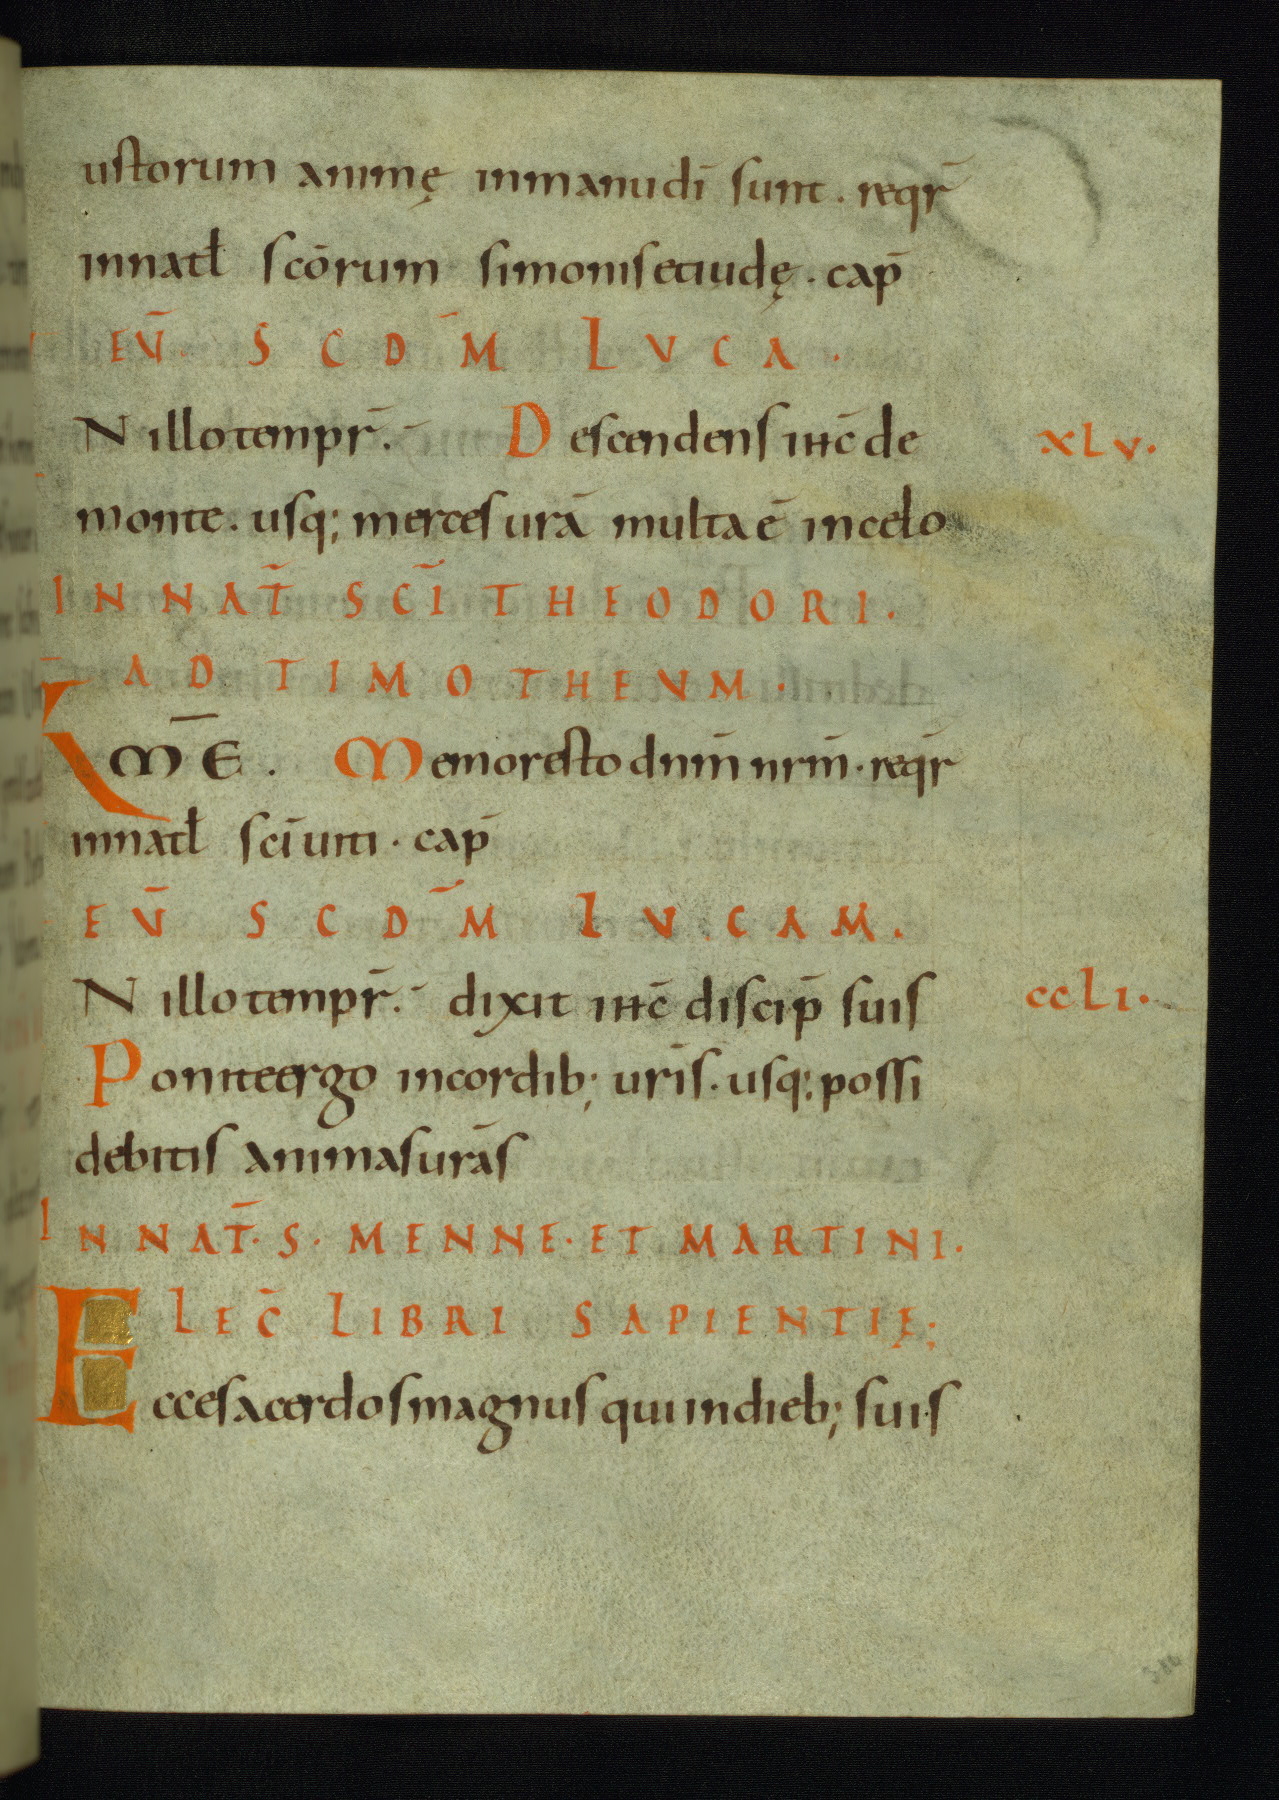 ustorum animę inmanudī sunt. reqr̄
innatł scōrum simonisetiudę. cap̄
EV̄. SCD̄M LVCA.
Nillotempr̄. Descendens ihc̄ de XLV.
monte. usq; mercesurā multaē incelo
INNAT̄ SC̄I THEODORI.
AD TIMOTHEVM.
K̄MĒ. Memorestodnm̄ nrm̄. reqr̄
innatł scīurti. cap̄
EV̄ SCD̄M LVCAM.
Nillotempr̄. dixit ihc̄ discip̄ suis ccLI.
Poniteergo incordib; urīs. usq; possi
debitis animasurās
INNAT̄. S. MENNE. ET MARTINI.
LEC̄ LIBRI SAPIENTIĘ;
Eccesacerdosmagnus quiindieb; suis